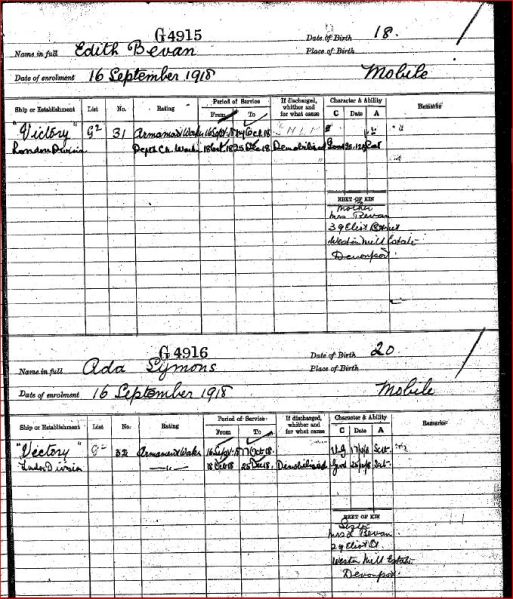 G4915
Name in full Edith Bevan
Date of Birth 18.
Place of Birth
Date of enrolment 16 September 1918
Mobile
Ship or Establishment List No. Rating Period of Service From To If discharged, whether and for what cause Character & Ability C Date A Remarks
"Victory" G2 31 Armament Worker 16 Sept 18 17 Oct 18
London Division Depth Ch. Work 18 Oct 18 25 Dec 18 Demobilised Good Sat
NEXT OF KIN
Mother
Mrs Bevan
39 Eliot Street
Weston Mill Estate
Devonport
G4916
Name in full Ada Symons
Date of Birth 20.
Place of Birth
Date of enrolment 16 September 1918
Mobile
Ship or Establishment List No. Rating Period of Service From To If discharged, whether and for what cause Character & Ability C Date A Remarks
"Victory" G2 32 Armament Worker 16 Sept 18 17 Oct 18 V.G. Sat
London Division 18 Oct 18 25 Dec 18 Demobilised Good Sat
NEXT OF KIN
Sister
Mrs L Bevan
29 Eliot St.
Weston Mill Estate
Devonport